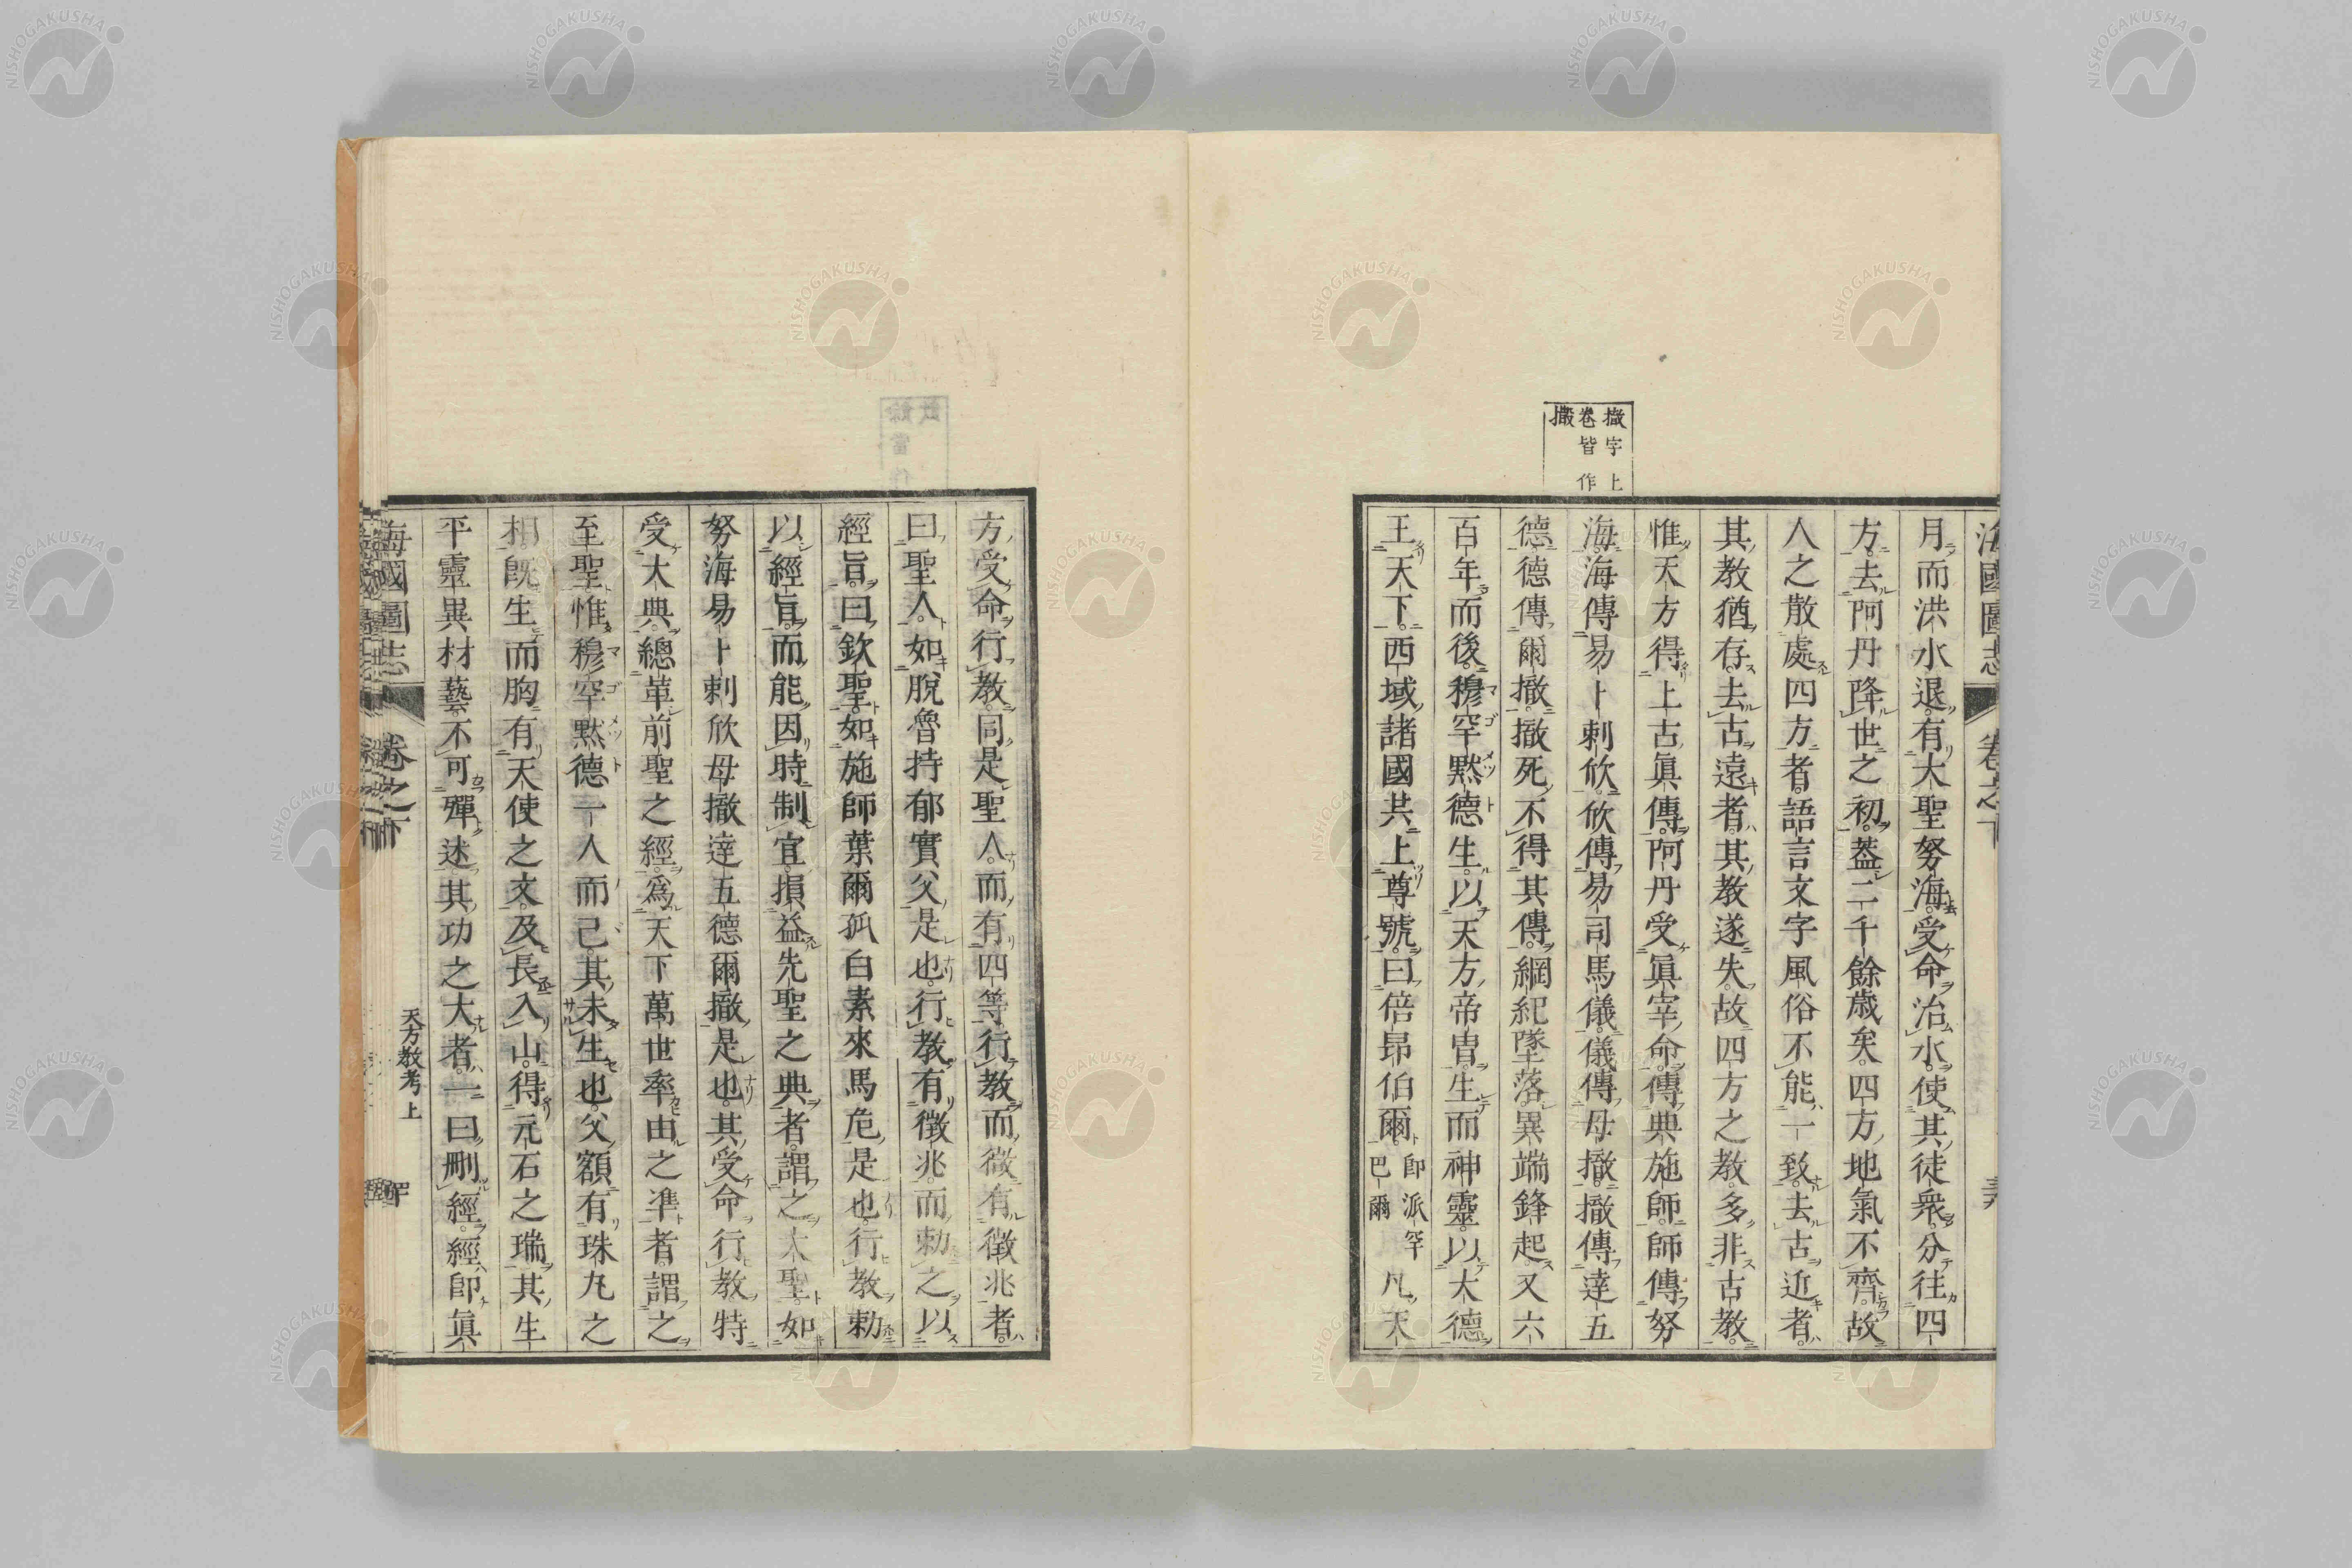 海國圖志 卷之下
撤字上
卷皆作
撒
月而洪水退有大聖努海受命治水使其徒衆分往四
方去阿丹降世之初葢二千餘歲矣四方地氣不齊故
人之散處四方者語言文字風俗不能一致去古近者
其教猶存去古遠者其教遂失故四方之教多非古教
惟天方得上古眞傳阿丹受眞宰命傳典施師師傳努
海海傳易卜剌欣欣傳易司馬儀儀傳母撤撤傳達五
德德傳爾撤撤死不得其傳綱紀墜落異端鋒起又六
百年而後穆罕默德生以天方帝胄生而神靈以大德
王天下西域諸國共上尊號曰倍昂伯爾卽派罕巴爾凡天
方受命行教同是聖人而有四等行教而微有徵兆者
曰聖人如脫魯持郁實父是也行教有徵兆而勅之以
經旨曰欽聖如施師葉爾孤白素來馬危是也行教勅
以經旨而能因時制宜損益先聖之典者謂之大聖如
努海易卜剌欣母撤達五德爾撤是也其受命行教特
受大典總革前聖之經爲天下萬世率由之準者謂之
至聖惟穆罕默德一人而已其未生也父額有珠丸之
相旣生而胸有天使之文及長入山得元石之瑞其生
平靈異材藝不可殫述其功之大者一曰刪經經卽眞
海國圖志 卷之下 天方教考上
NISHOGAKUSHA